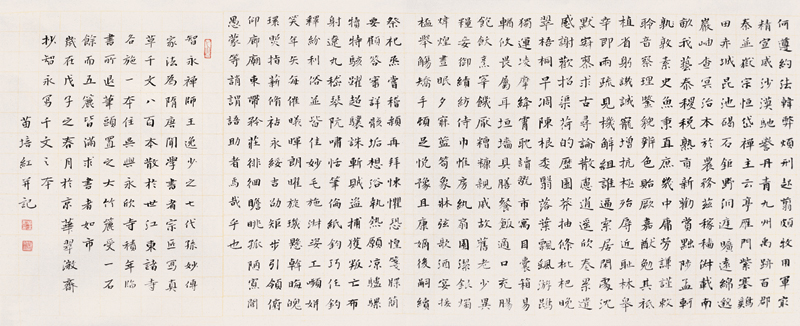 何遵約法韓弊煩刑起翦頗牧用軍最
精宣威沙漠馳譽丹青九州禹跡百郡
秦并嶽宗恒岱禪主云亭雁門紫塞雞
田赤城昆池碣石鉅野洞庭曠遠綿邈
巖岫杳冥治本於農務茲稼穡俶載南
畝我藝黍稷稅熟貢新勸賞黜陟孟軻
敦素史魚秉直庶幾中庸勞謙謹敕
聆音察理鑒貌辨色貽厥嘉猷勉其祗
植省躬譏誡寵增抗極殆辱近恥林皋
幸即兩疏見機解組誰逼索居閑處沈
默寂寥求古尋論散慮逍遙欣奏累遣
慼謝歡招渠荷的歷園莽抽條枇杷晚
翠梧桐早凋陳根委翳落葉飄颻游鵾
獨運凌摩絳霄耽讀翫市寓目囊箱易
輶攸畏屬耳垣牆具膳餐飯適口充腸
飽飫烹宰飢厭糟糠親戚故舊老少異
糧妾御績紡侍巾帷房紈扇圓潔銀燭
煒煌晝眠夕寐藍筍象牀弦歌酒宴接
杯舉觴矯手頓足悅豫且康嫡後嗣續
祭祀烝嘗稽顙再拜悚懼恐惶箋牒簡
要顧答審詳骸垢想浴執熱願涼驢騾
犢特駭躍超驤誅斬賊盜捕獲叛亡布
射遼丸嵇琴阮嘯恬筆倫紙鈞巧任釣
釋紛利俗並皆佳妙毛施淑姿工顰妍
笑年矢每催曦暉朗曜旋璣懸斡晦魄
環照指薪脩祜永綏吉劭矩步引領俯
仰廊廟束帶矜莊徘徊瞻眺孤陋寡聞
愚蒙等誚謂語助者焉哉乎也
智永禪師王逸少之七代孫妙傳
家法為隋唐間學書者宗匠寫真
草千文八百本散於世江東諸寺
各施一本住吳興永欣寺積年臨
書所退筆頭置之大竹簏受一石
餘而五簏皆滿求書者如市
歲在戊子之春月於京華翠微齋
抄智永寫千文之本
苗培紅并記